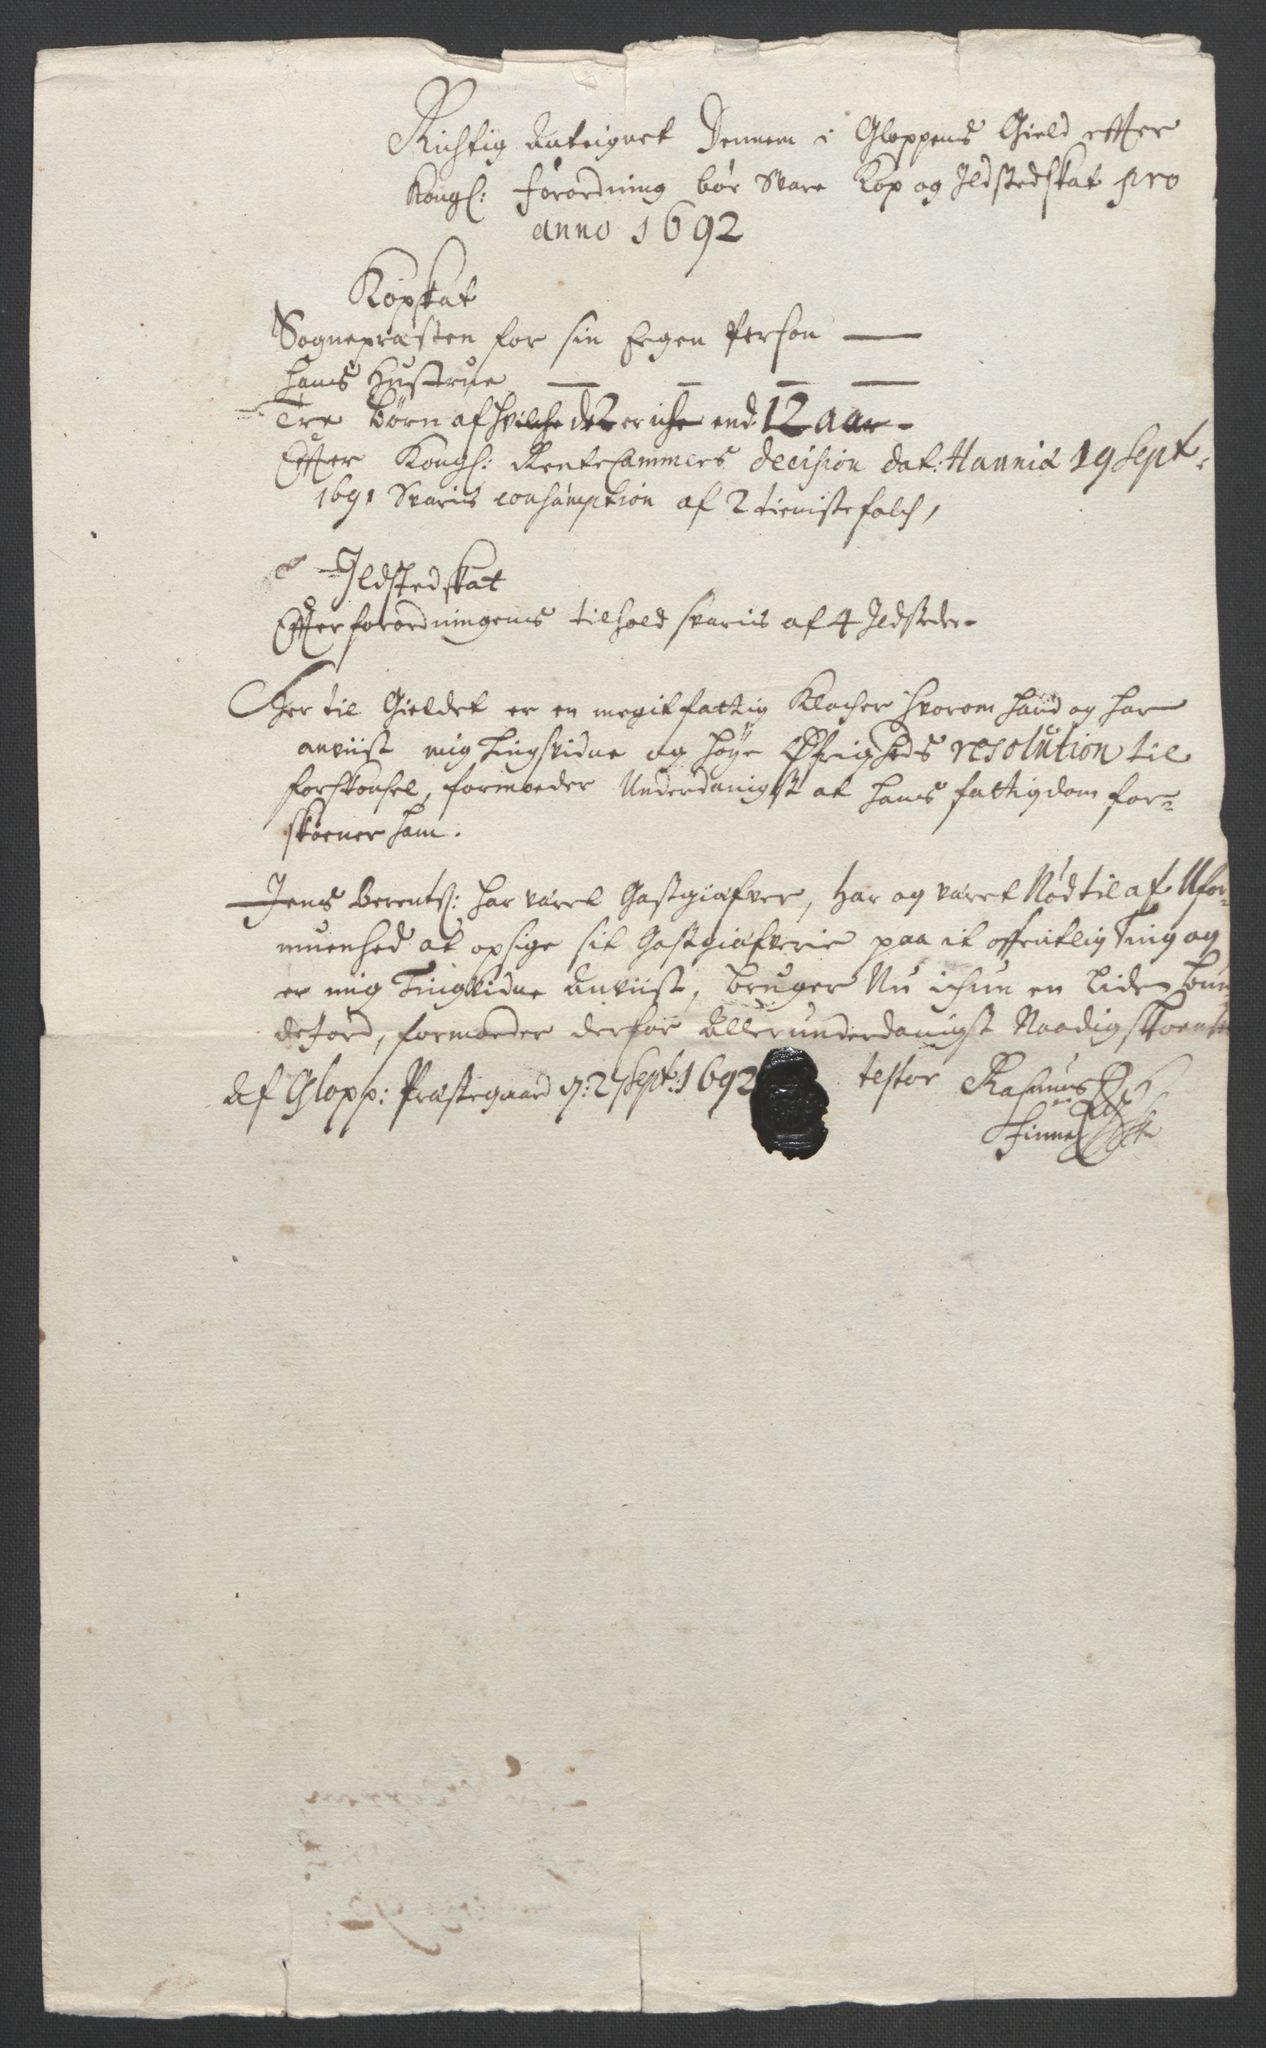 Richtig Anteignet Dennem i Gloppens Gield effter
Kongl: forordning bør Svare Kop og Ildstedskat pro
anno 1692
Kopskat
Sognepræsten for sin Egen Person
Hans Hustrue
Tre børn af hvilche de 2 er iche end 12 aar
Effter Kongl: RenteCammers decision dat: Hannia 19 Sept
1691 Svaris consumption af 2 tienistefolch,
Ildstedskat
Effter forordningens tilhold svaris af 4 Ildsteder
Her til Gieldet er en megit fattig Klocher hvorom hand og har
anviist mig tingsvidne og høye Øfrigheds resolution til
forskonsel, formoeder Underdanigst at hans fattigdom for-
skoener ham.
Jens Berents: har været Gastgiæfver, har og været Nød til af Ufor-
muenhed at opsige sit Gastgiæfverie paa it offentlig Ting og
er mig Tingsvidne Anviist, bruger Nu ichun en liden bun
de Jord, formoeder derfor Allerunderdanigst Naadig
Af Glopp: Præstegaard d: 2 Sept: 1692 testor Rasmus
Finne